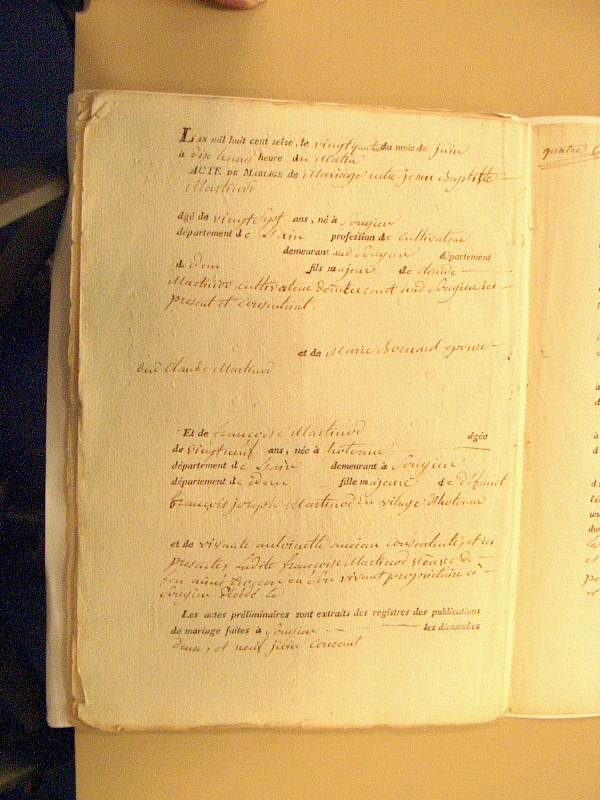 L'AN mil huit cent seize, le vingt quatre du mois de juin
à dix heures heure du Matin
ACTE DE MARIAGE de Mariage entre jean Baptiste
Martinod
âgé de vingt sept ans, né à Songieu
département de L'ain profession de Cultivateur
demeurant aud Songieu département
de idem fils majeur de Claude
Martinod cultivateur demeurant aud Songieu ici
present et consentant.
et de Marie Bonnard epouse
dud Claude Martinod
Et de françoise Martinod âgée
de vingt neuf ans, née à hotonne
département de L'ain demeurant à Songieu
département de idem fille majeure de défunt
françois joseph Martinod du village d'hotonne
et de vivante antoinette consentante, et ici
presente, Ladite françoise Martinod veuve de
feu en Son vivant proprietaire à
Songieu décédé le
Les actes préliminaires sont extraits des registres des publications
de mariage faites à Songieu les dimanches
deux, et neuf juin courant
quatre